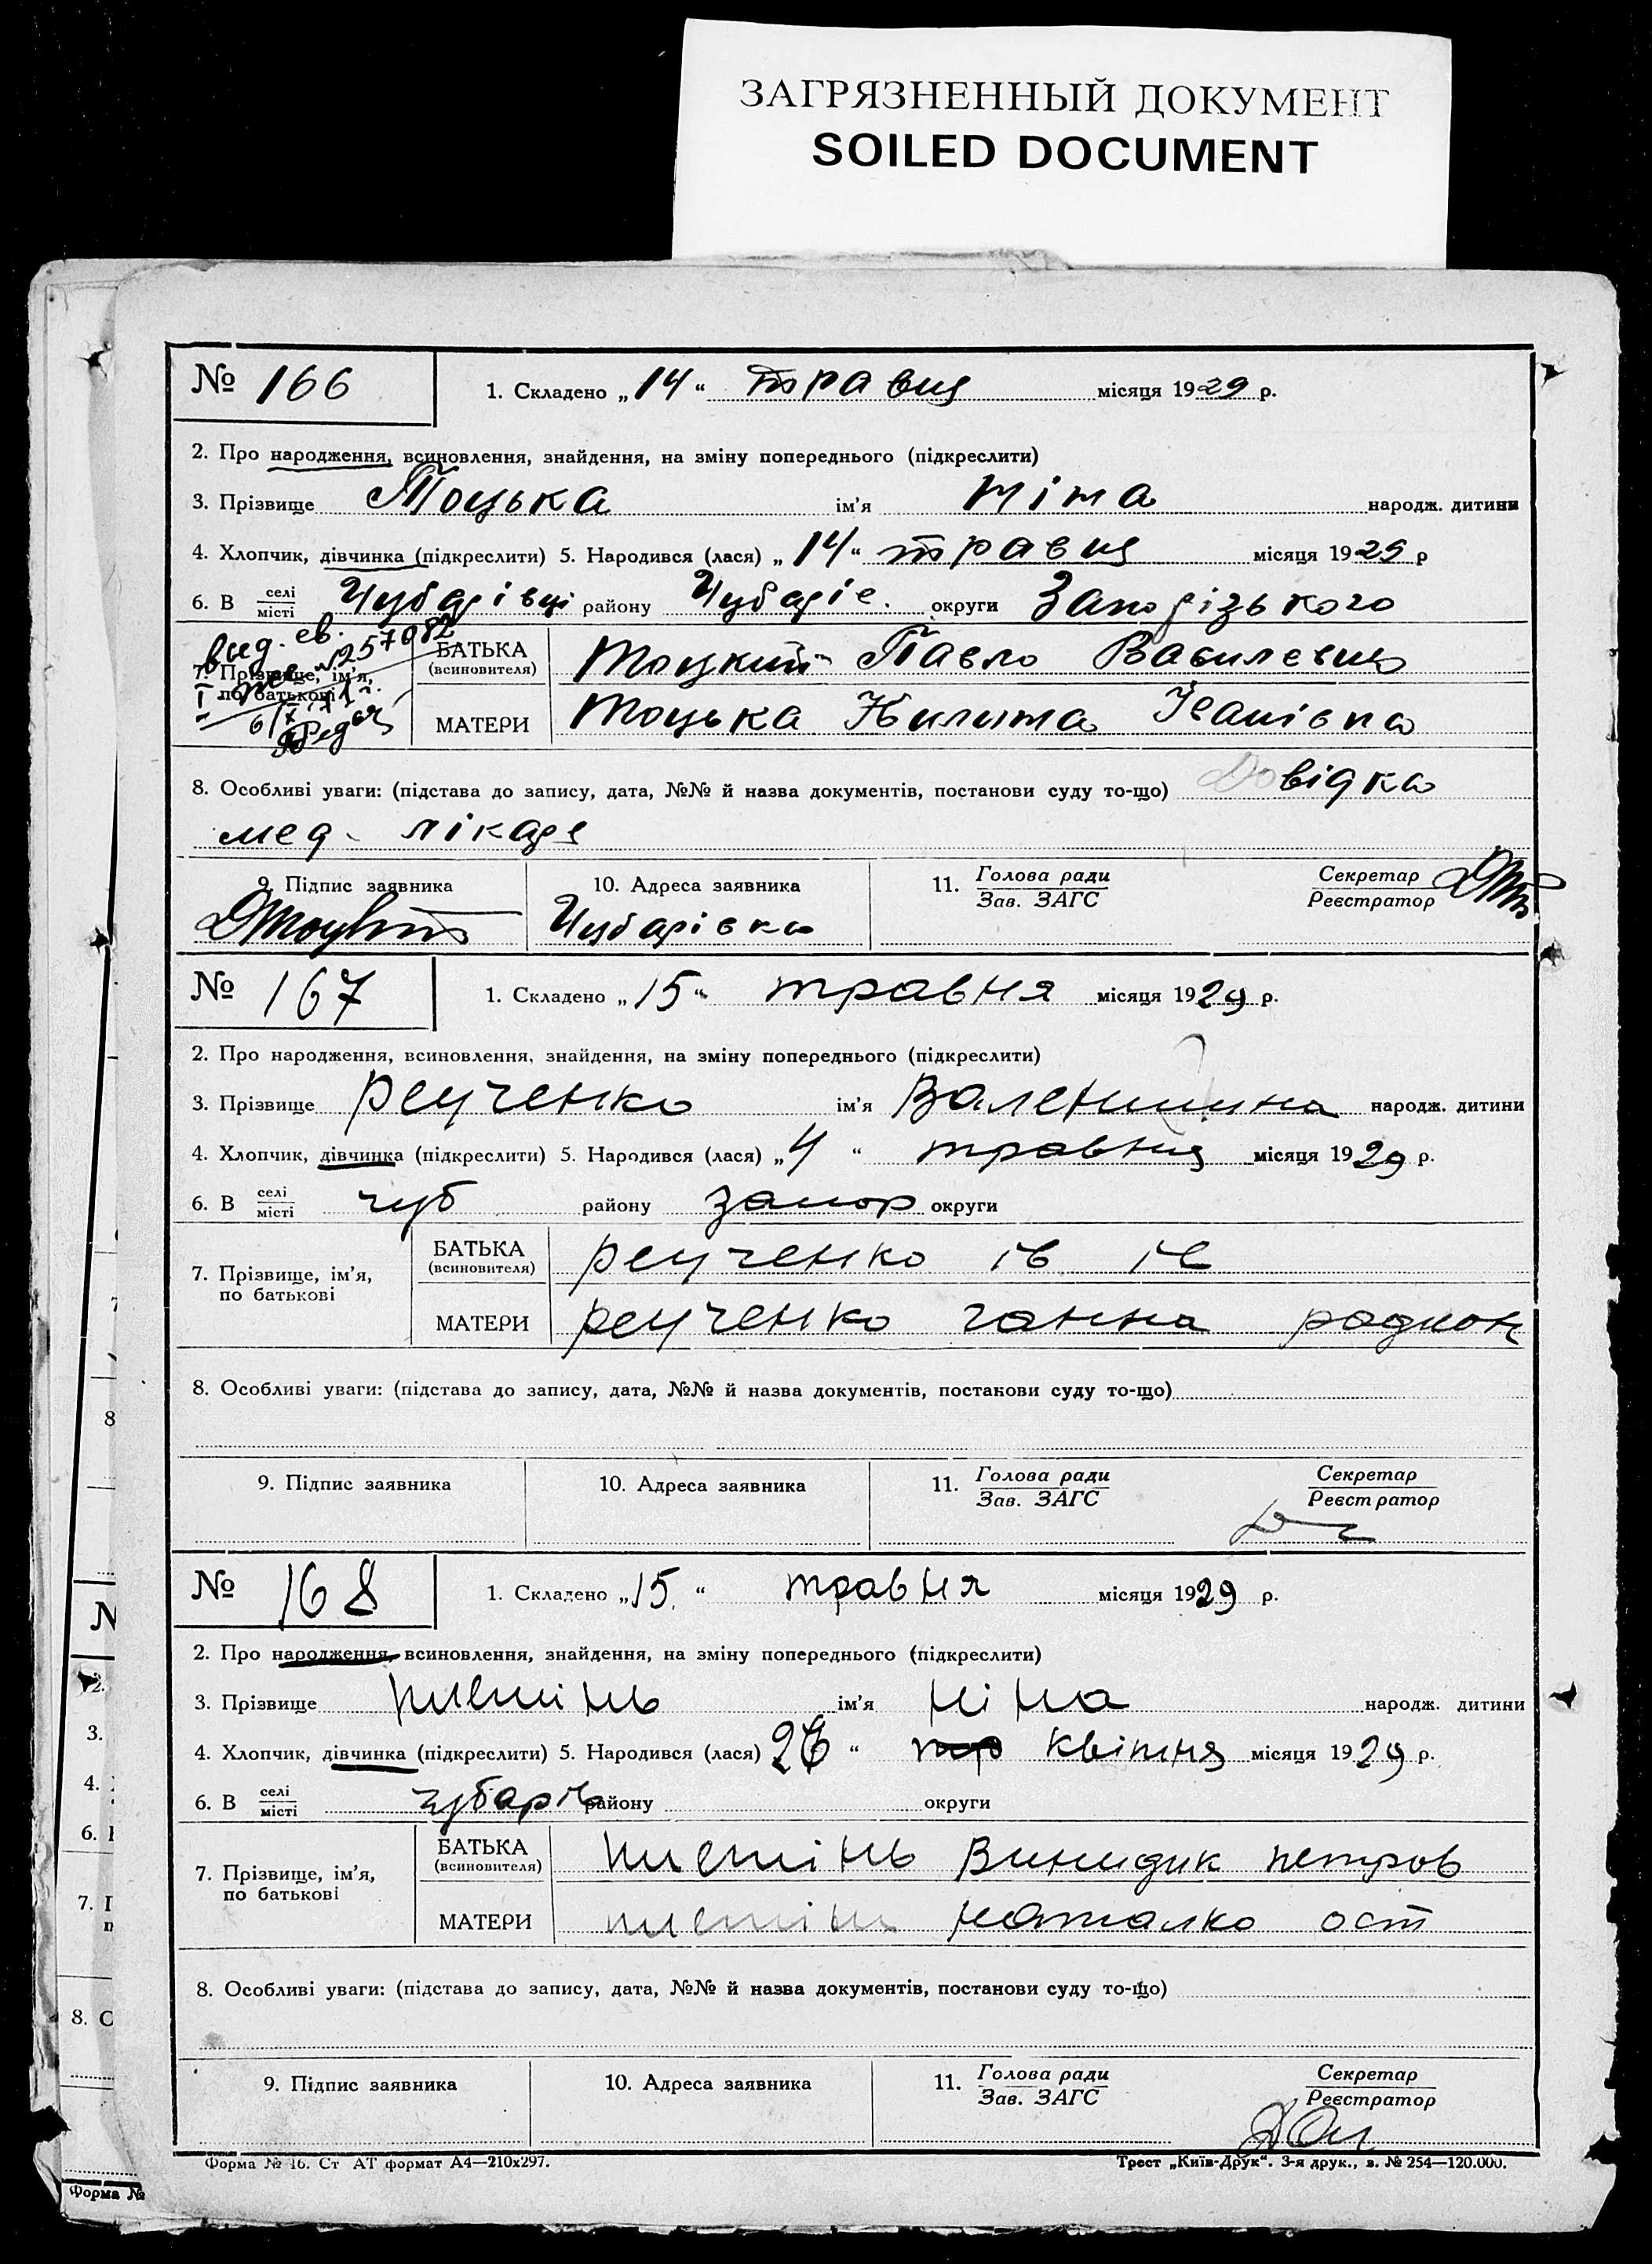 ЗАГРЯЗНЕННЫЙ ДОКУМЕНТ
SOILED DOCUMENT
№ 166
1. Складено „14“ травня місяця 1929 р.
2. Про народження, всиновлення, знайдення, на зміну попереднього (підкреслити)
3. Прізвище Тоцька ім'я народж. дитини
4. Хлопчик, дівчинка (підкреслити) 5. Народився (лася) „14“ травня місяця 1929 р
6. В селі/місті Чубарівці району Чубарів. округи Запорізького
7. Прізвище, ім'я, по батькові
вид. св.
№ 257082
БАТЬКА (всиновителя) Тоцкий Павло Василевич
МАТЕРИ Тоцька Килина Іванівна
8. Особливі уваги: (підстава до запису, дата, №№ й назва документів, постанови суду то-що) Довідка
мед. лікаря
9. Підпис заявника 10. Адреса заявника 11. Голова ради/Зав. ЗАГС Секретар/Реєстратор
Чубарівка
№ 167
1. Складено „15“ травня місяця 1929 р.
2. Про народження, всиновлення, знайдення, на зміну попереднього (підкреслити)
3. Прізвище Реученко ім'я Валентина народж. дитини
4. Хлопчик, дівчинка (підкреслити) 5. Народився (лася) „4“ травня місяця 1929 р.
6. В селі/місті чуб району запор округи
7. Прізвище, ім'я, по батькові
БАТЬКА (всиновителя) реученко ів ів
МАТЕРИ реученко ганна радион
8. Особливі уваги: (підстава до запису, дата, №№ й назва документів, постанови суду то-що)
9. Підпис заявника 10. Адреса заявника 11. Голова ради/Зав. ЗАГС Секретар/Реєстратор
№ 168
1. Складено „15.“ травня місяця 1929 р.
2. Про народження, всиновлення, знайдення, на зміну попереднього (підкреслити)
3. Прізвище ім'я ніна народж. дитини
4. Хлопчик, дівчинка (підкреслити) 5. Народився (лася) “ квітня місяця 1929 р.
6. В селі/місті чубарів району округи
7. Прізвище, ім'я, по батькові
БАТЬКА (всиновителя) петров
МАТЕРИ наталко ост
8. Особливі уваги: (підстава до запису, дата, №№ й назва документів, постанови суду то-що)
9. Підпис заявника 10. Адреса заявника 11. Голова ради/Зав. ЗАГС Секретар/Реєстратор
Форма № 16. Ст АТ формат А4—210х297.
Трест „Київ-Друк“. 3-я друк., з. № 254—120.000.
Форма №